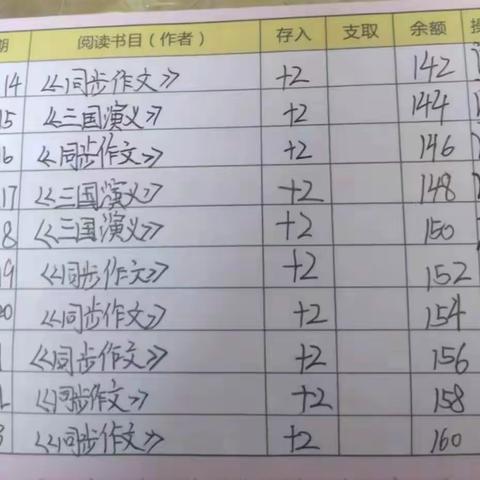 期 阅读书目(作者) 存入 支取 余额
14 《同步作文》 +2 142
15 《三国演义》 +2 144
16 《同步作文》 +2 146
17 《三国演义》 +2 148
8 《三国演义》 +2 150
19 《同步作文》 +2 152
20 《同步作文》 +2 154
1 《同步作文》 +2 156
2 《同步作文》 +2 158
3 《同步作文》 +2 160